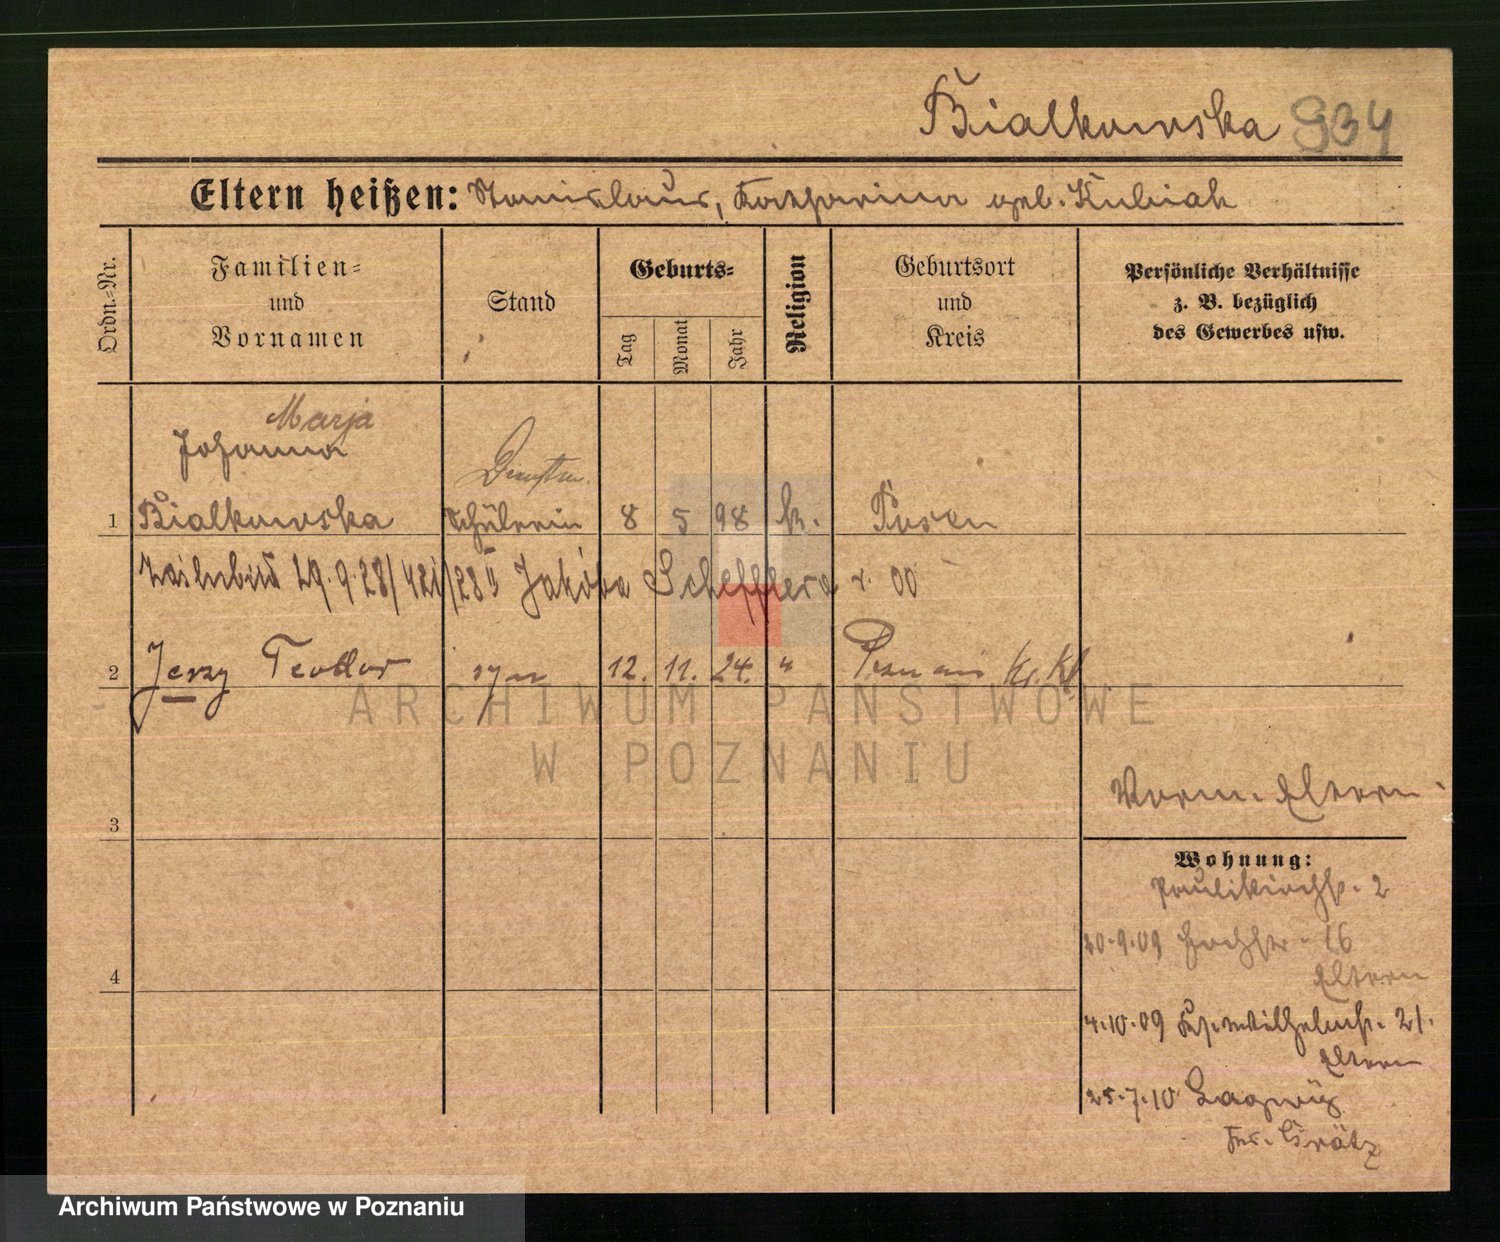 Bialkowska 934
Eltern heißen: Stanislaus, Katharina geb. Kubiak
Ordn.-Nr.
Familien-
und
Vornamen
Stand
Geburts-
Tag
Monat
Jahr
Religion
Geburtsort
und
Kreis
Persönliche Verhältnisse
z. B. bezüglich
des Gewerbes usw.
Marja
Johanna
1 Bialkowska Schülerin 8 5 98 k. Posen
29.9.28/421/28 Jakóba Schefflera r. 00
2 Jerzy Teodor syn 12. 11. 24. " Poznań
ARCHIWUM PAŃSTWOWE
W POZNANIU
Vorm. Eltern
3
Wohnung:
Paulikirchstr. 2
20.9.09 16
Eltern
4
4.10.09 21.
Eltern
25.7.10
Grätz
Archiwum Państwowe w Poznaniu